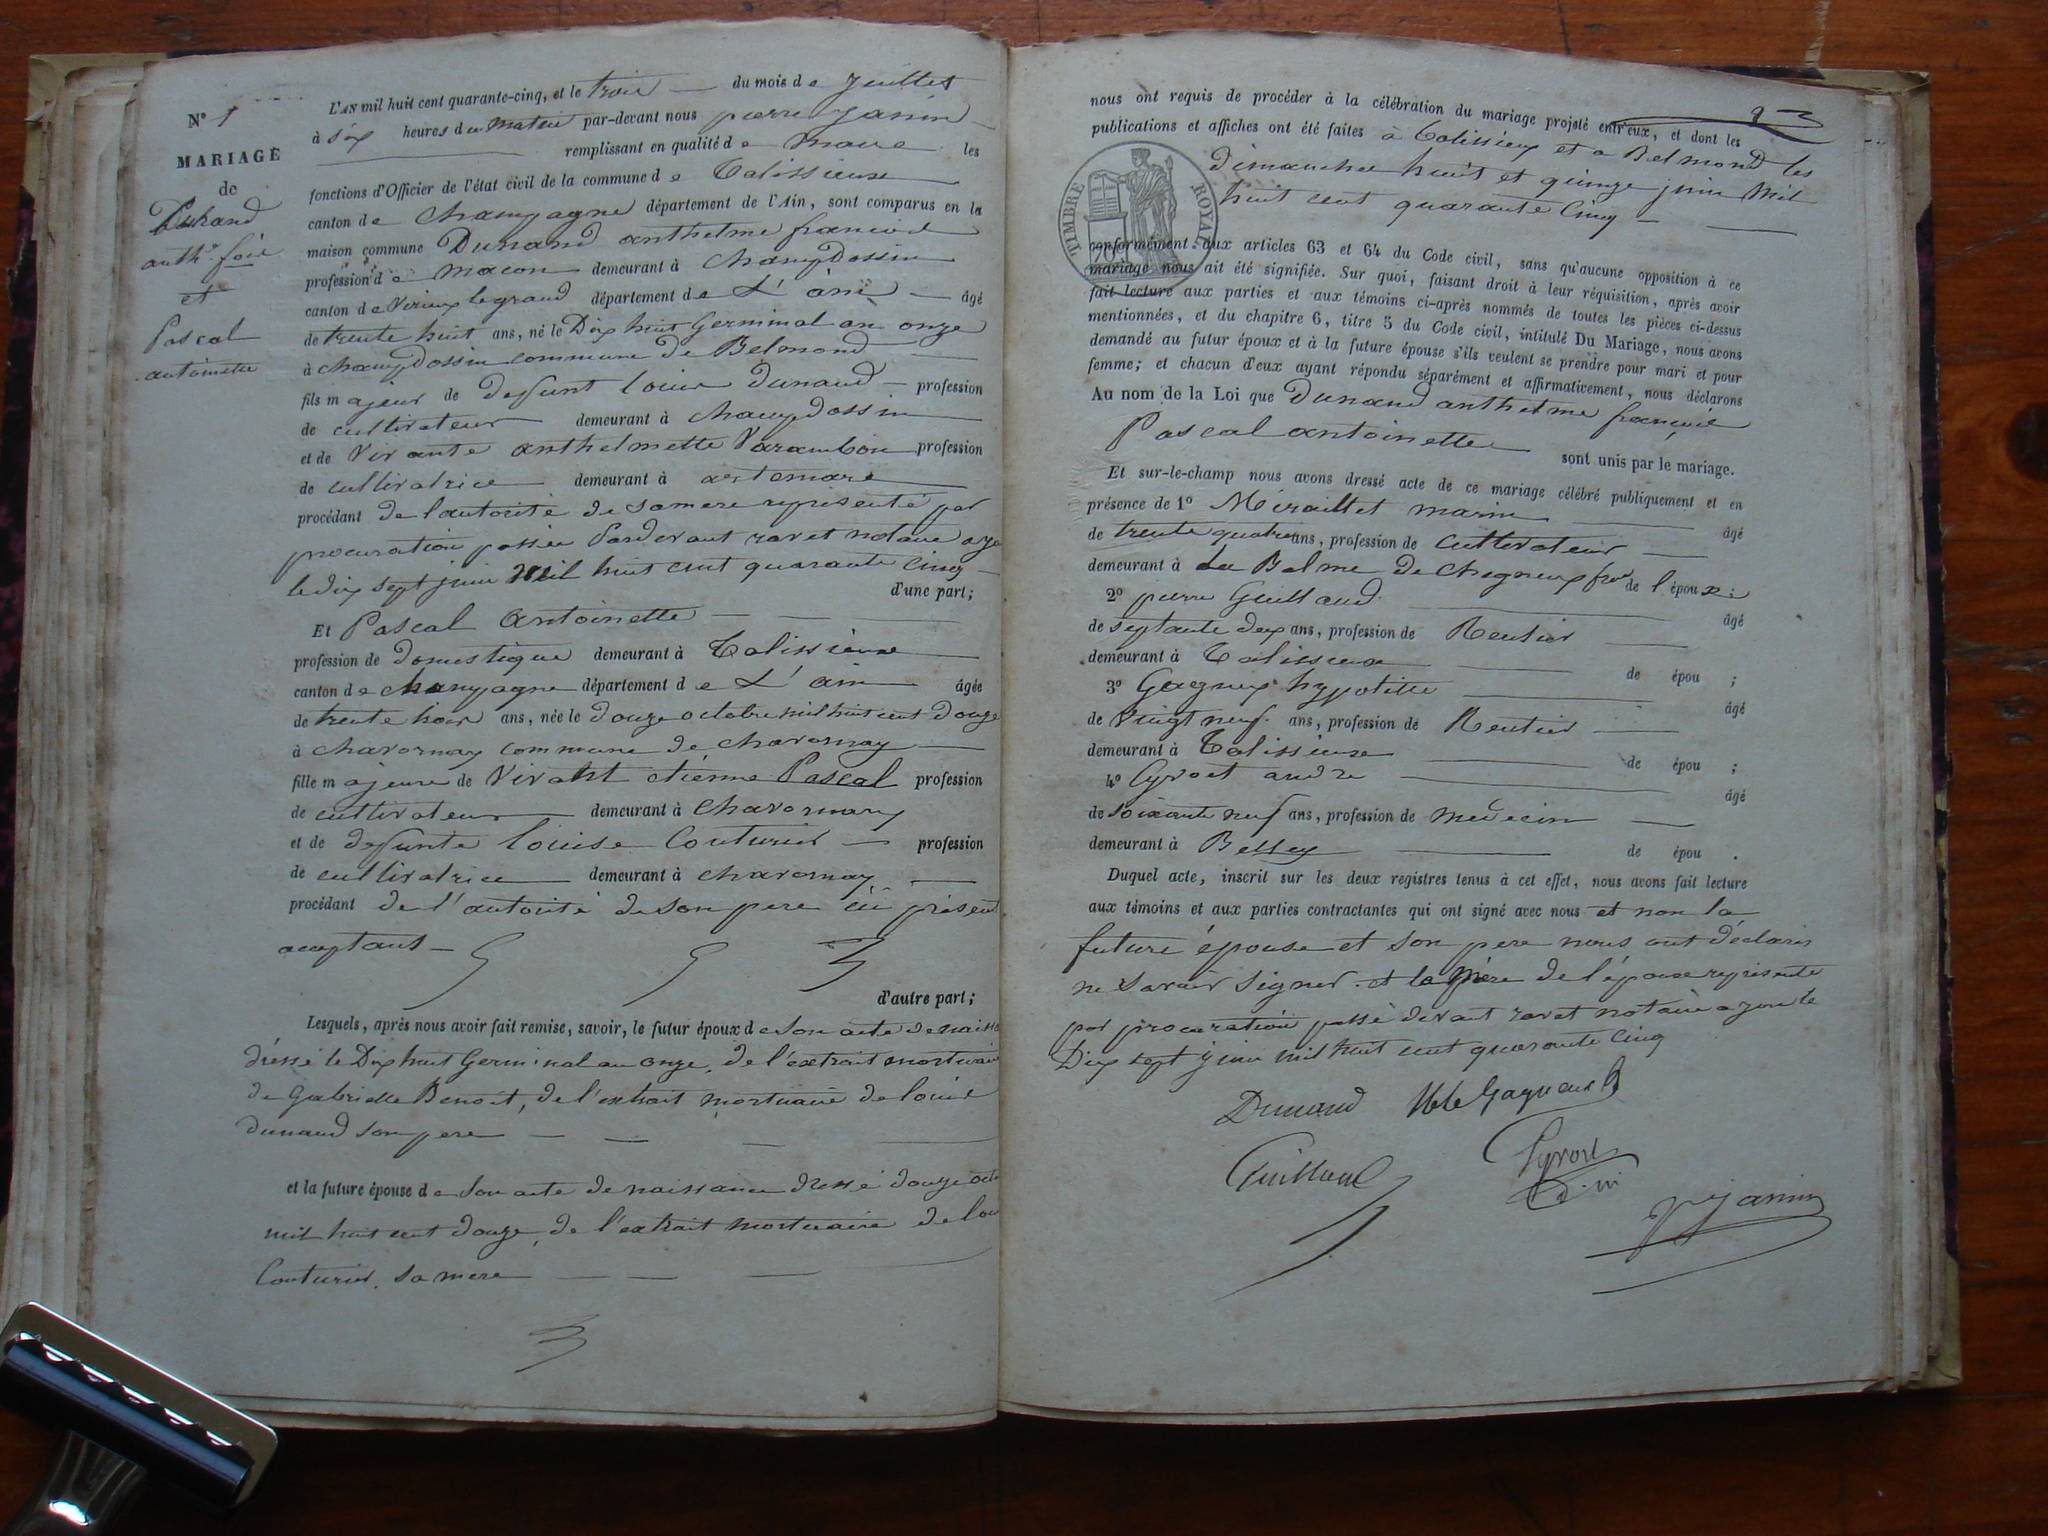 N° 1
MARIAGE
de
Dunand
anth.e fois
et
Pascal
antoinette
L'AN mil huit cent quarante-cinq, et le trois du mois de Juillet
à six heures du matin par-devant nous pierre Janin
remplissant en qualité de Maire les
fonctions d'Officier de l'état civil de la commune de Talissieux
canton de Champagne département de l'Ain, sont comparus en la
maison commune Dunand anthelme francois
profession de macon demeurant à Champdossin
canton de Virieux legrand département de L'ain âgé
de trente huit ans, né le Dix huit Germinal an onze
à champdossin commune de Belmond
fils majeur de deffunt louis dunand profession
de cultivateur demeurant à champdossin
et de Vivante anthelmette Varambon profession
de cultivatrice demeurant à artemare
procédant de l'autorité de sa mere representé par
procuration passée Pardevant ravet notaire aye
le dix sept juin Mil huit cent quarante cinq
d'une part;
Et Pascal Antoinette
profession de domestique demeurant à Talissieux
canton de champagne département de L'ain âgée
de trente trois ans, née le douze octobre mil huit cent douze
à chavornay commune de chavornay
fille majeure de Vivant etienne Pascal profession
de cultivateur demeurant à Chavornay
et de defunte louise Couturier profession
de cultivatrice demeurant à chavornay
procédant de l'autorité de son pere ici présent
acceptant
d'autre part;
Lesquels, après nous avoir fait remise, savoir, le futur époux de son acte de naiss
dressé le Dix huit Germinal an onze, de l'extrait mortuaire
de Gabrielle Benoit, de l'extrait mortuaire de louis
dunand son pere
et la future épouse de son acte de naissance dressé douze octo
mil huit cent douze, de l'extrait mortuaire de lou
Couturier, sa mere
2
nous ont requis de procéder à la célébration du mariage projeté entr'eux, et dont les
publications et affiches ont été faites à Talissieux et a Belmond les
dimanches huit et quinze juin Mil
huit cent quarante Cinq
TIMBRE ROYAL
70
conformément aux articles 63 et 64 du Code civil, sans qu'aucune opposition à ce
mariage nous ait été signifiée. Sur quoi, faisant droit à leur réquisition, après avoir
fait lecture aux parties et aux témoins ci-après nommés de toutes les pièces ci-dessus
mentionnées, et du chapitre 6, titre 5 du Code civil, intitulé Du Mariage, nous avons
demandé au futur époux et à la future épouse s'ils veulent se prendre pour mari et pour
femme; et chacun d'eux ayant répondu séparément et affirmativement, nous déclarons
Au nom de la Loi que Dunand anthelme francois
Pascal antoinette
sont unis par le mariage.
Et sur-le-champ nous avons dressé acte de ce mariage célébré publiquement et en
présence de 1° Miraillet marin âgé
de trente quatre ans, profession de cultivateur
demeurant à La Balme de Chegneux de l'époux;
2° pierre Guilland âgé
de septante deux ans, profession de Rentier
demeurant à Talissieux de épou ;
3° Gagneux hypolitte âgé
de Vingt neuf ans, profession de Rentier
demeurant à Talissieux de épou ;
4° Cyvoct andre âgé
de soixante neuf ans, profession de medecin
demeurant à Belley de épou .
Duquel acte, inscrit sur les deux registres tenus à cet effet, nous avons fait lecture
aux témoins et aux parties contractantes qui ont signé avec nous et non la
future épouse et son pere nous ont déclarés
ne savoir signer et la mère de l'épouse représenté
par procuration passé devant ravet notaire a yon le
Dix sept juin mil huit cent quarante Cinq
Dunand Hte Gagneux
Guilland Cyvoct
d. m
P Janin